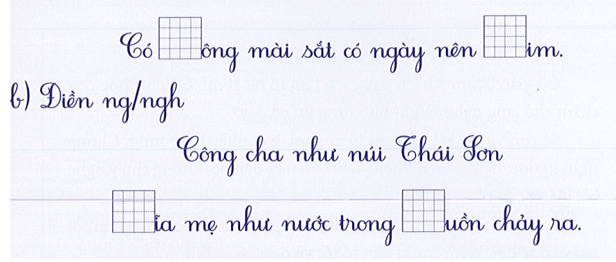 Có ông mài sắt có ngày nên im.
b) Điền ng/ngh
Công cha như núi Thái Sơn
ĩa mẹ như nước trong uồn chảy ra.